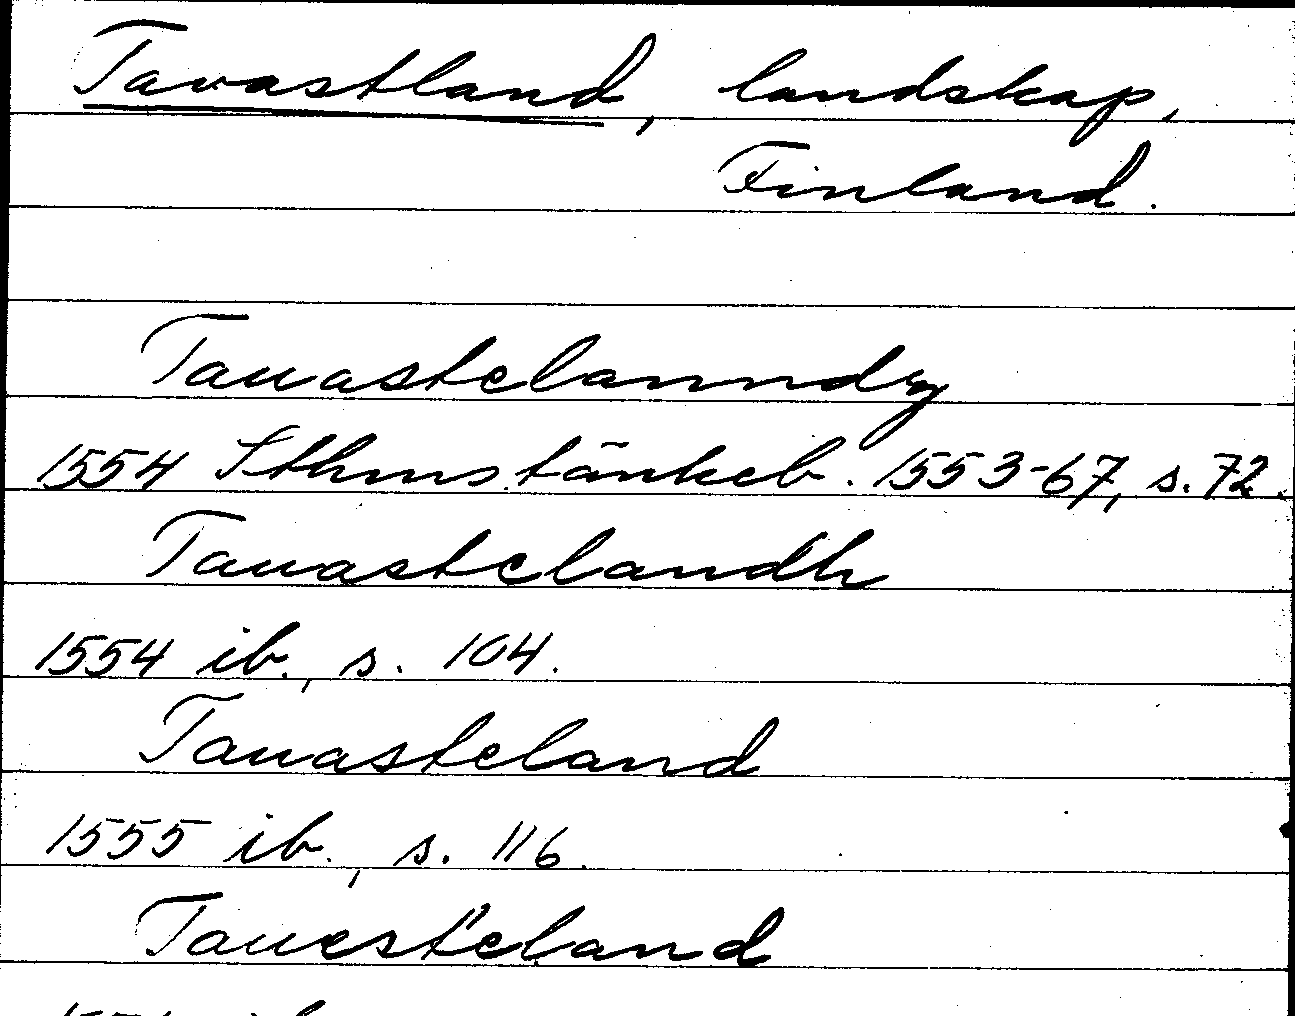 Tavastland, landskap,
Finland.
Tauastelanndz
1554 Sthms tänkeb. 1553-67, s. 72.
Tauastelandh
1554 ib., s. 104.
Tauasteland
1555 ib., s. 116.
Tauesteland